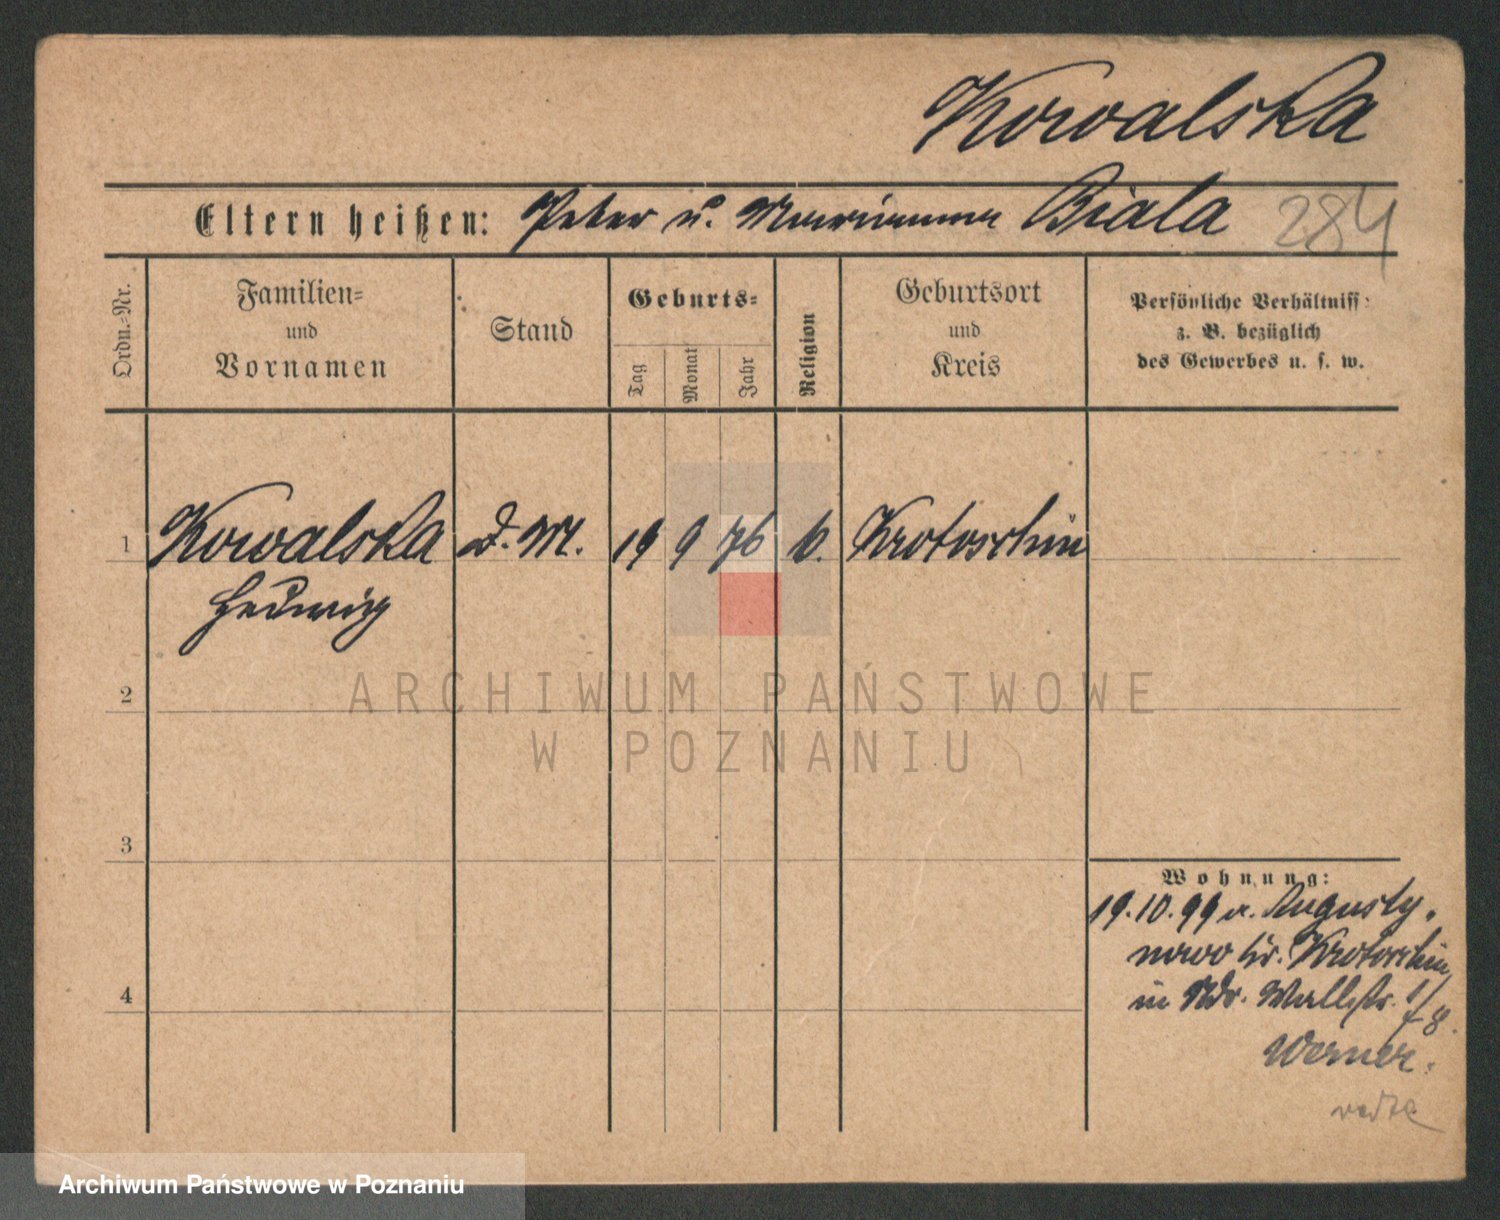 Kowalska
Eltern heißen: Peter u. Marianna Biala 284
Ordn.-Nr.
Familien-
und
Vornamen
Stand
Geburts-
Tag
Monat
Jahr
Religion
Geburtsort
und
Kreis
Persönliche Verhältnisse
z. B. bezüglich
des Gewerbes u. s. w.
1 Kowalska D. M. 19 9 76 k. Krotoschin
Hedwig
2
3
4
Wohnung:
19.10.99 a. Augusty-
nowo Kr. Krotoschin
in Wallstr. 1/
78.
Werner.
ARCHIWUM PAŃSTWOWE
W POZNANIU
Archiwum Państwowe w Poznaniu